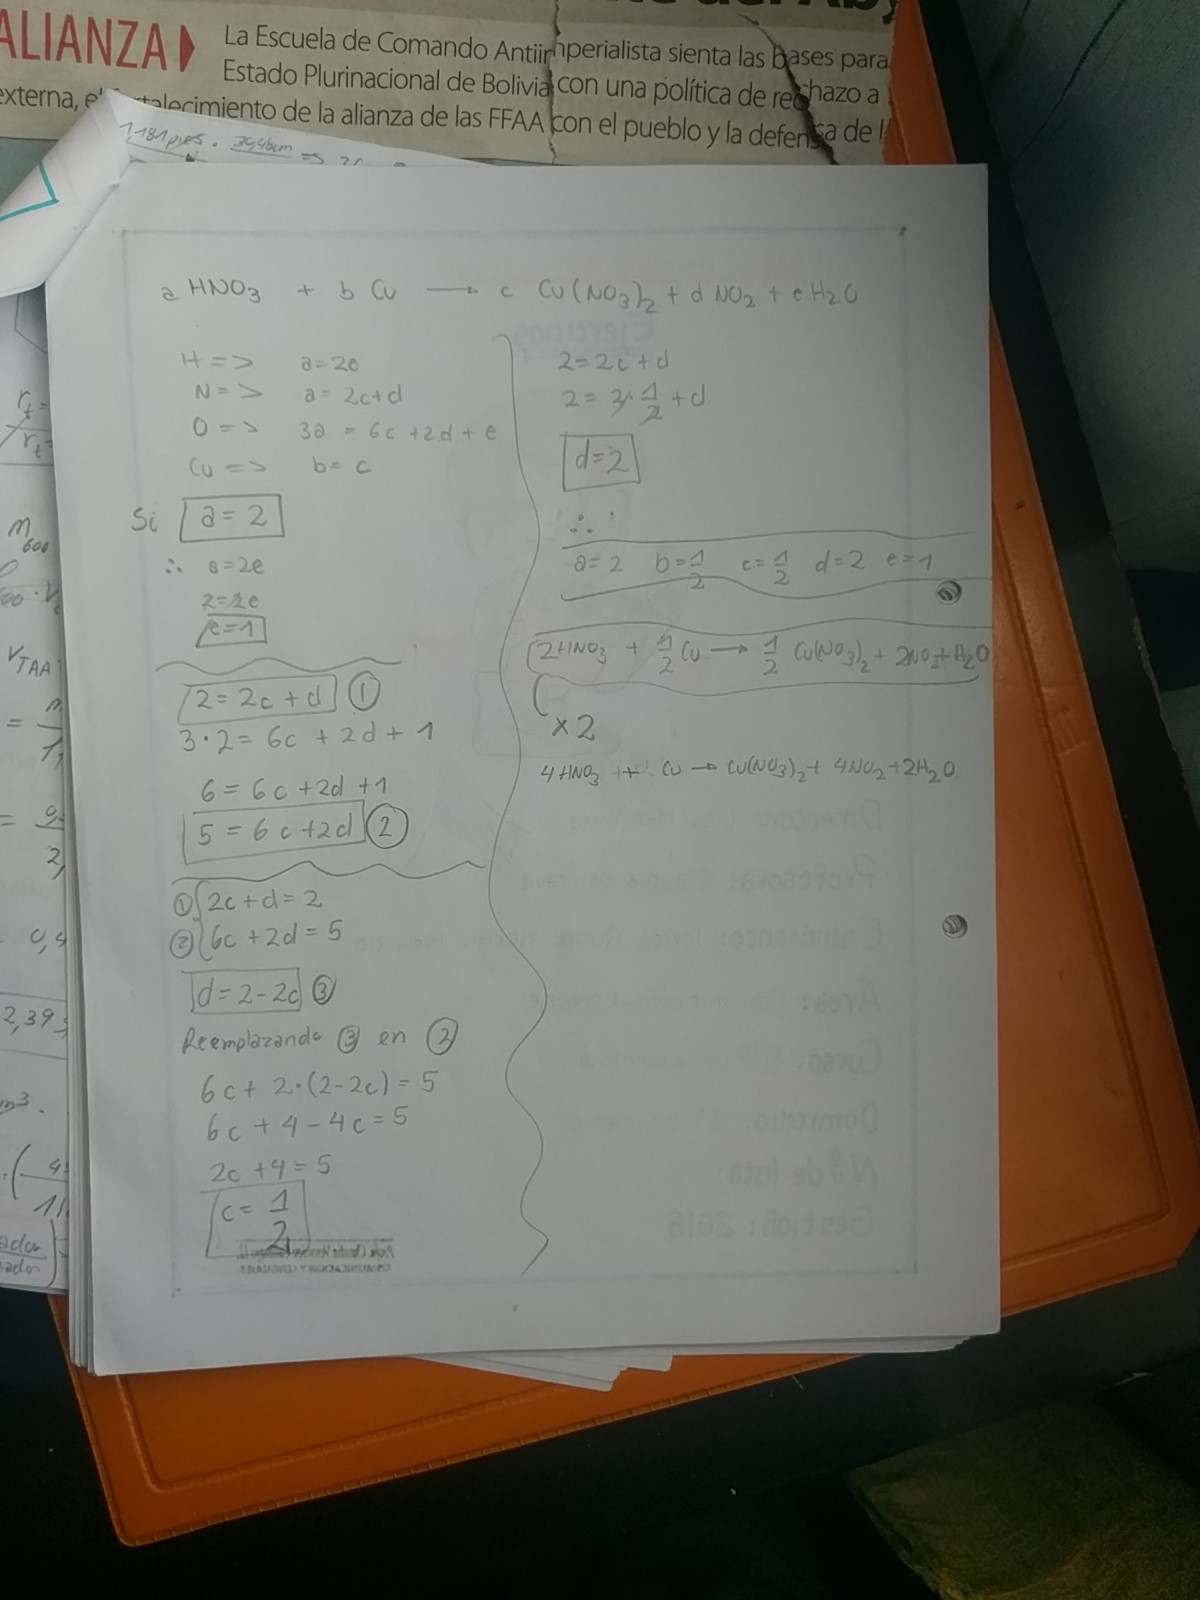 ALIANZA
La Escuela de Comando Antiimperialista sienta las bases para
Estado Plurinacional de Bolivia con una política de rechazo a
externa, el fortalecimiento de la alianza de las FFAA con el pueblo y la defensa de l
a HNO3 + b Cu → c Cu(NO3)2 + d NO2 + e H2O
H => a=2e
N => a=2c+d
O => 3a = 6c +2d + e
Cu => b= c
Si a = 2
∴ a=2e
2=2e
e=1
2 = 2c + d ①
3·2 = 6c + 2d + 1
6 = 6c + 2d + 1
5 = 6c + 2d ②
① 2c + d = 2
② 6c + 2d = 5
d = 2 - 2c ③
Reemplazando ③ en ②
6c + 2·(2-2c) = 5
6c + 4 - 4c = 5
2c + 4 = 5
c = 1/2
2 = 2c + d
2 = 2·1/2 + d
d=2
∴
a=2 b=1/2 c=1/2 d=2 e=1
2HNO3 + 1/2 Cu → 1/2 Cu(NO3)2 + 2NO2 + H2O
x2
4HNO3 + Cu → Cu(NO3)2 + 4NO2 + 2H2O